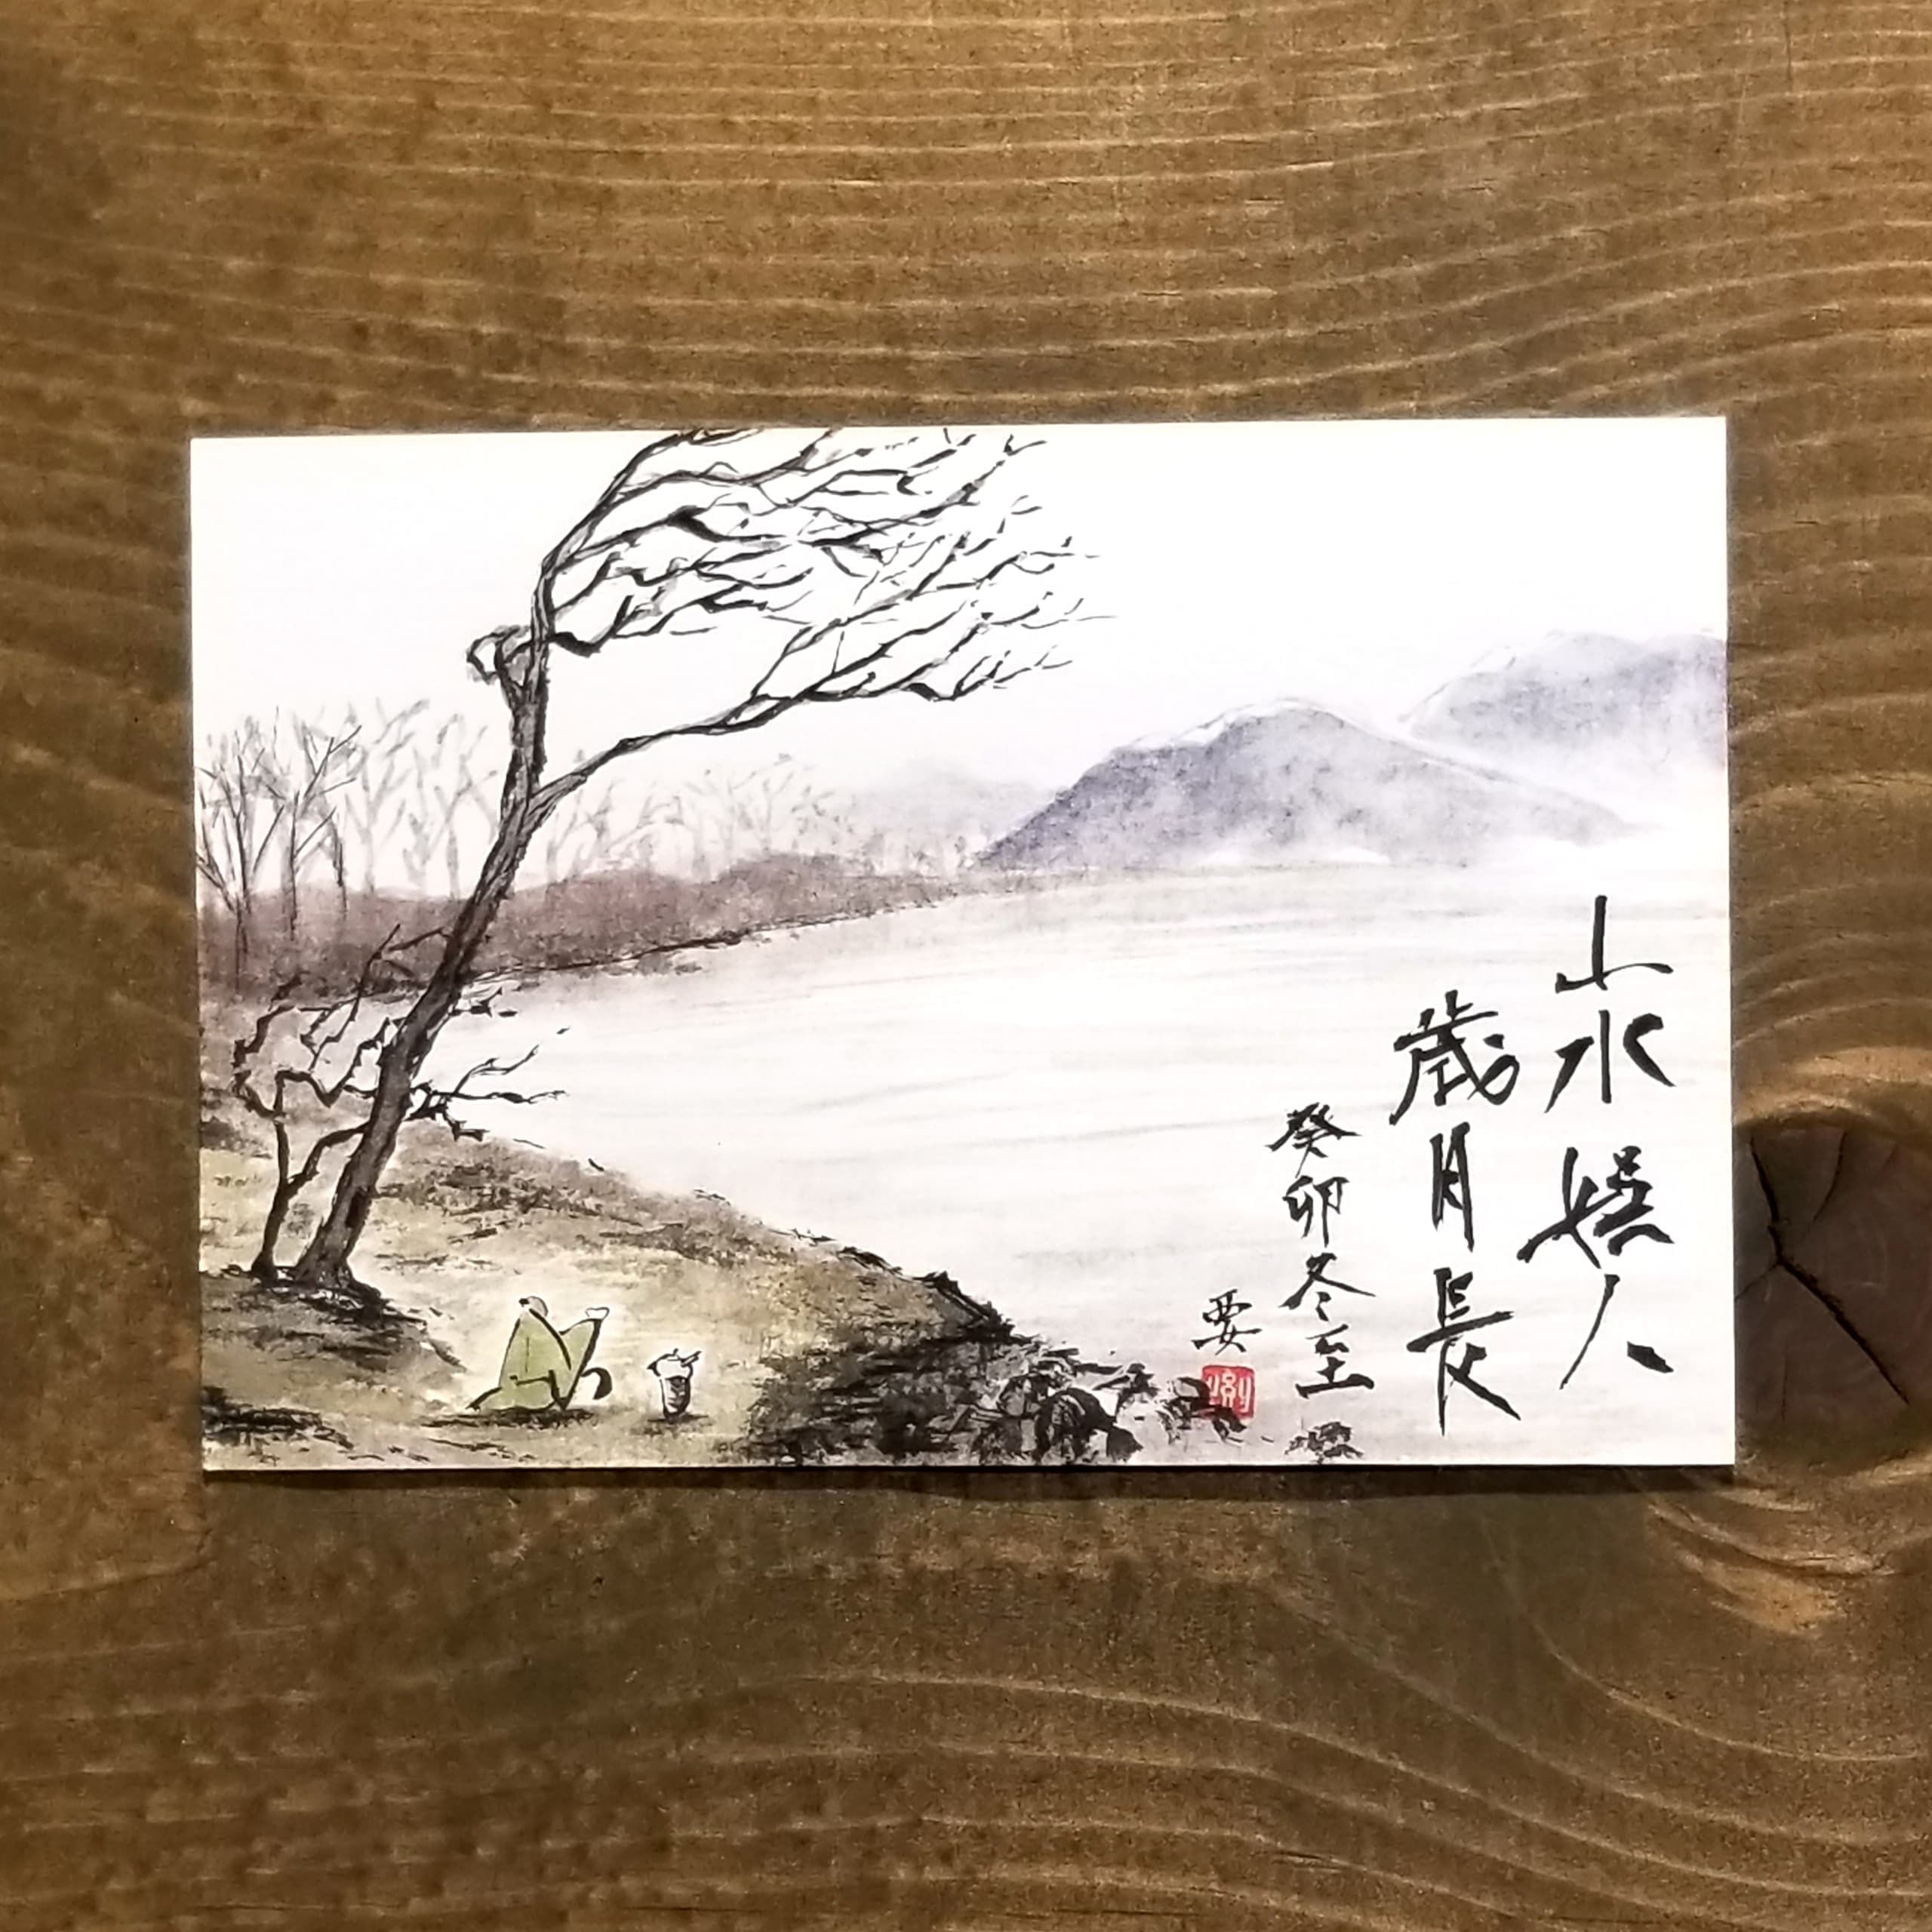 山水娛人
歲月長
癸卯冬至
要